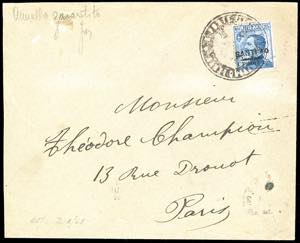 Annullo garantito
SASENO
Monsieur
Théodore Champion
13 Rue Drouot
Paris